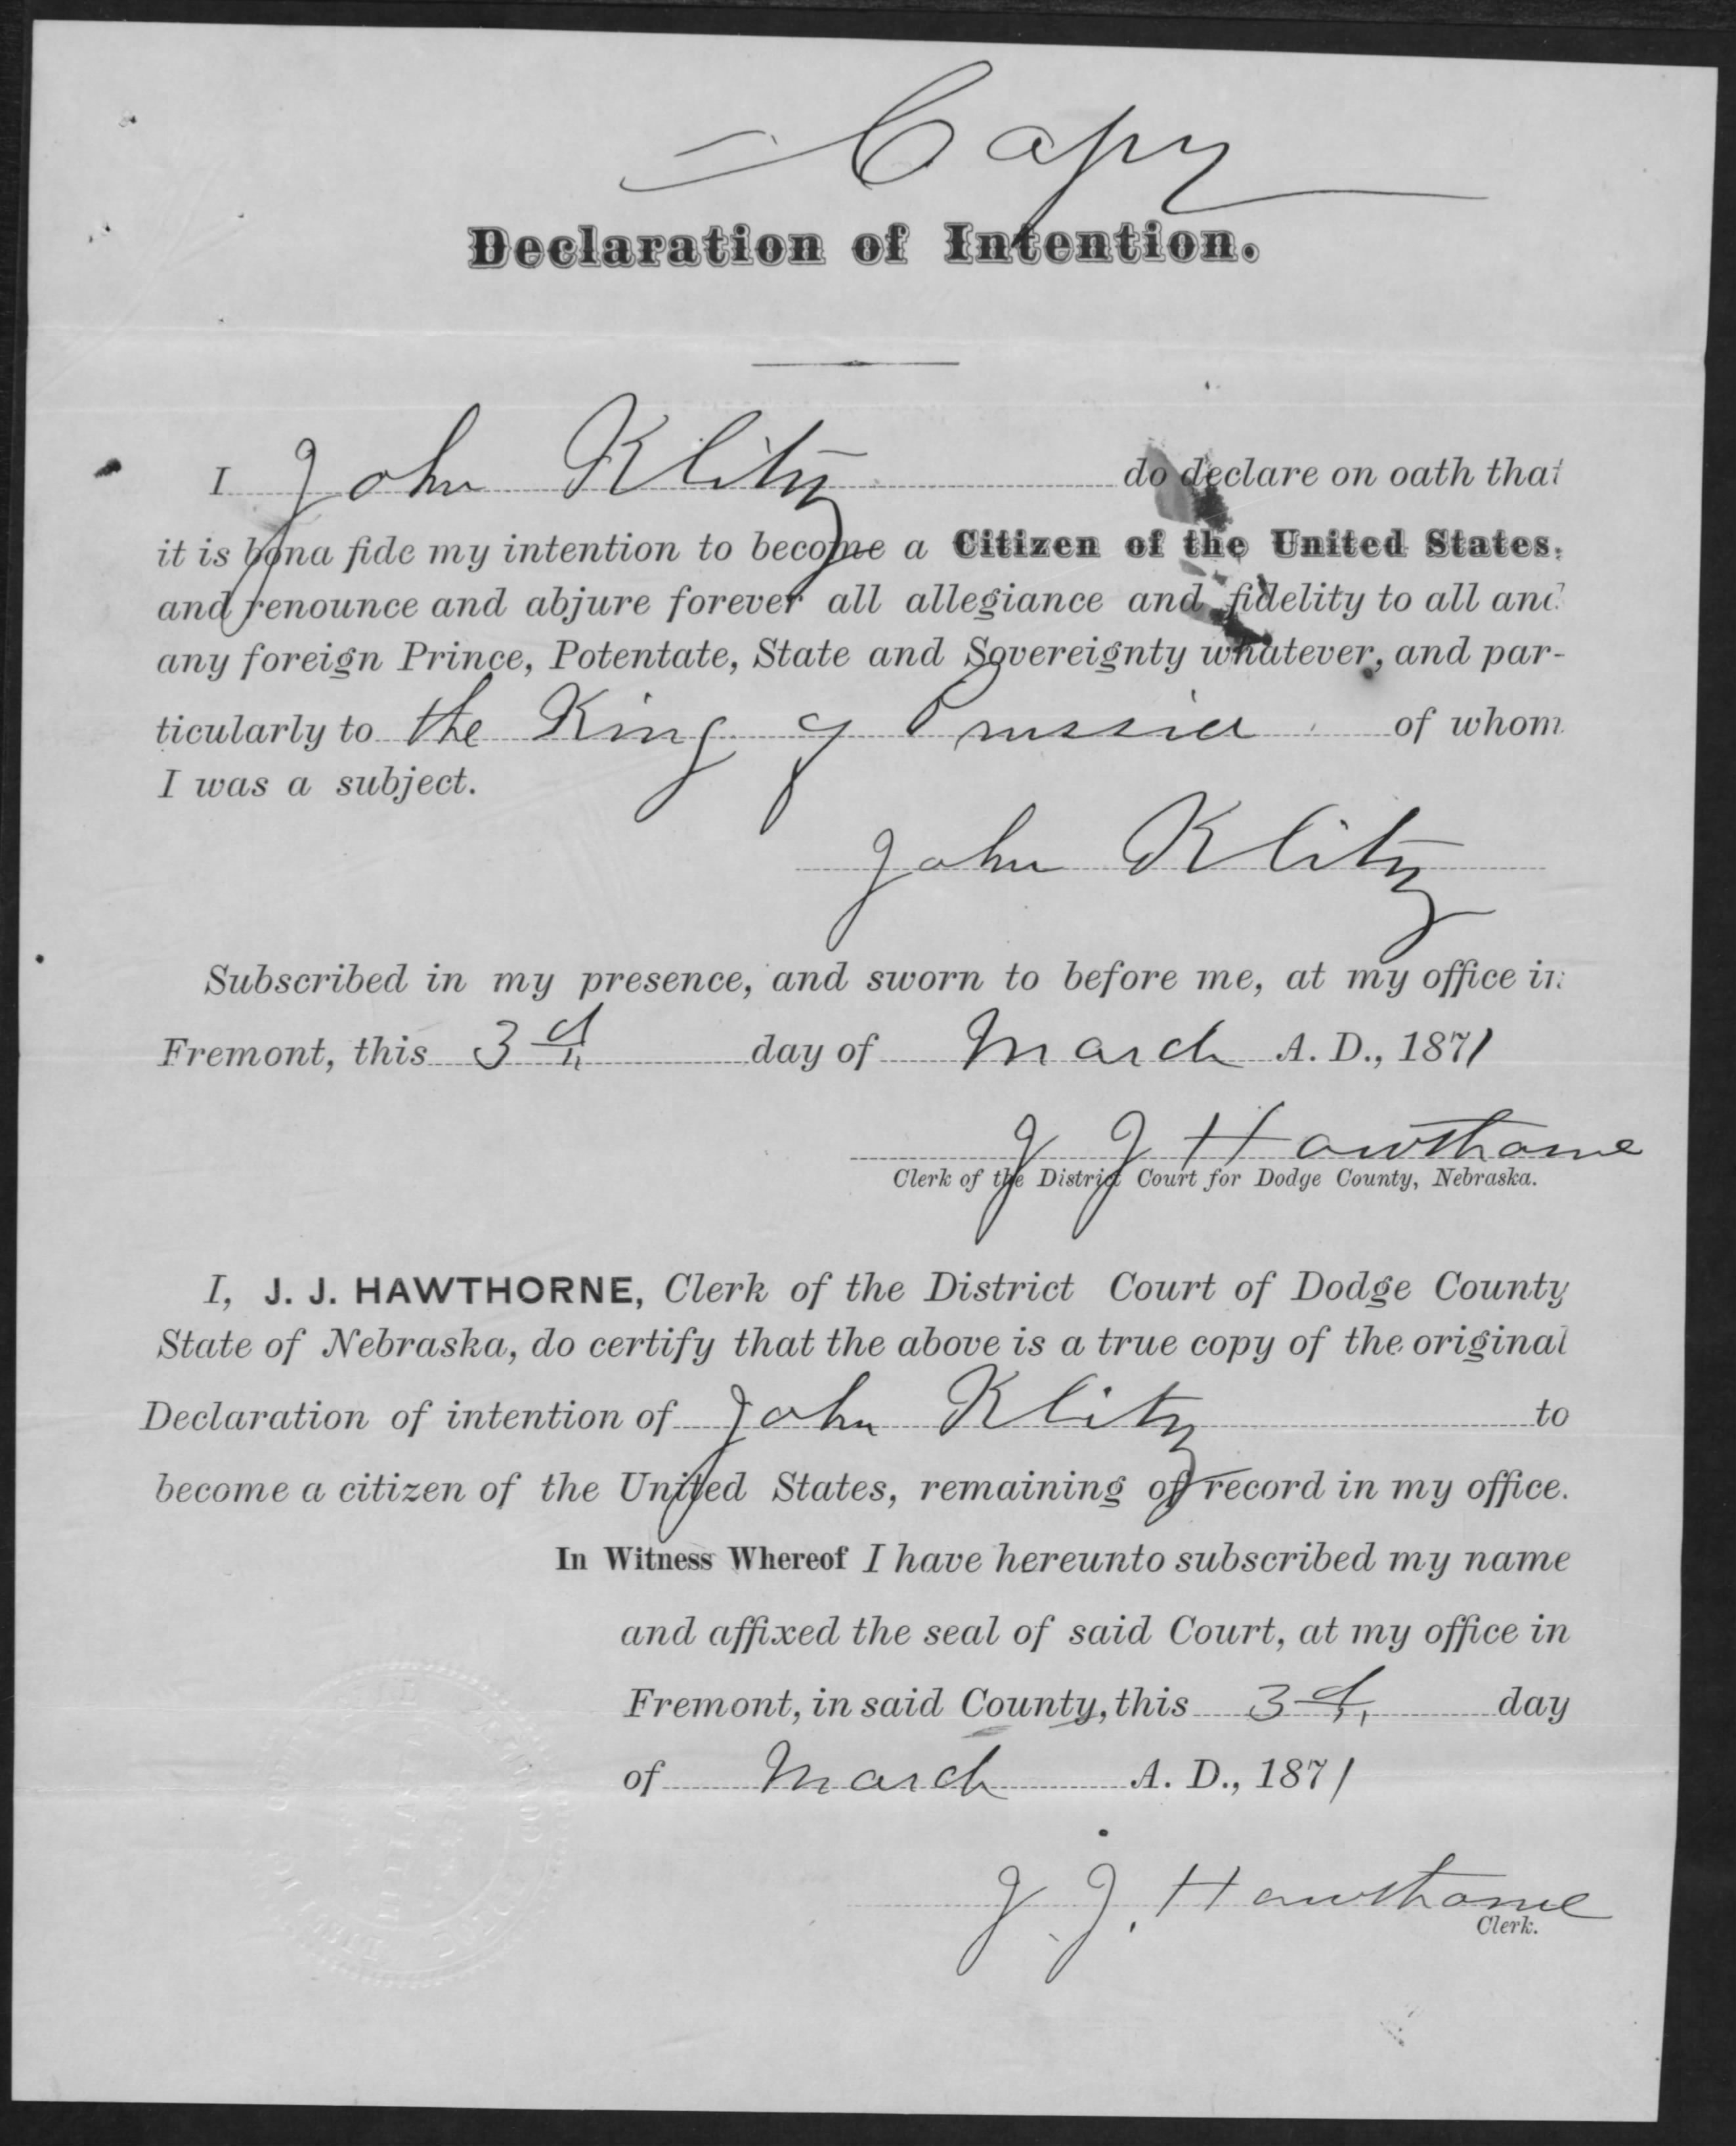 Copy
Declaration of Intention.
I John Klitz do declare on oath that
it is bona fide my intention to become a Citizen of the United States,
and renounce and abjure forever all allegiance and fidelity to all and
any foreign Prince, Potentate, State and Sovereignty whatever, and par-
ticularly to the King of Prussia of whom
I was a subject.
John Klitz
Subscribed in my presence, and sworn to before me, at my office in
Fremont, this 3d day of March A. D., 1871
J J Hawthorne
Clerk of the District Court for Dodge County, Nebraska.
I, J. J. HAWTHORNE, Clerk of the District Court of Dodge County
State of Nebraska, do certify that the above is a true copy of the original
Declaration of intention of John Klitz to
become a citizen of the United States, remaining of record in my office.
In Witness Whereof I have hereunto subscribed my name
and affixed the seal of said Court, at my office in
Fremont, in said County, this 3d day
of March A. D., 1871
J. J. Hawthorne
Clerk.